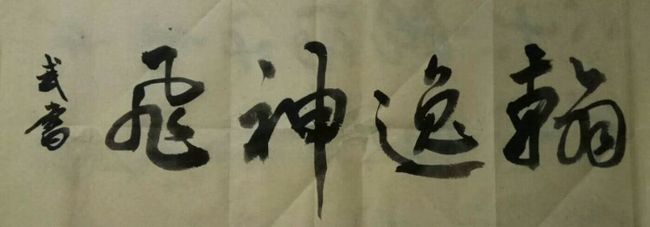 翰逸神飛
武書